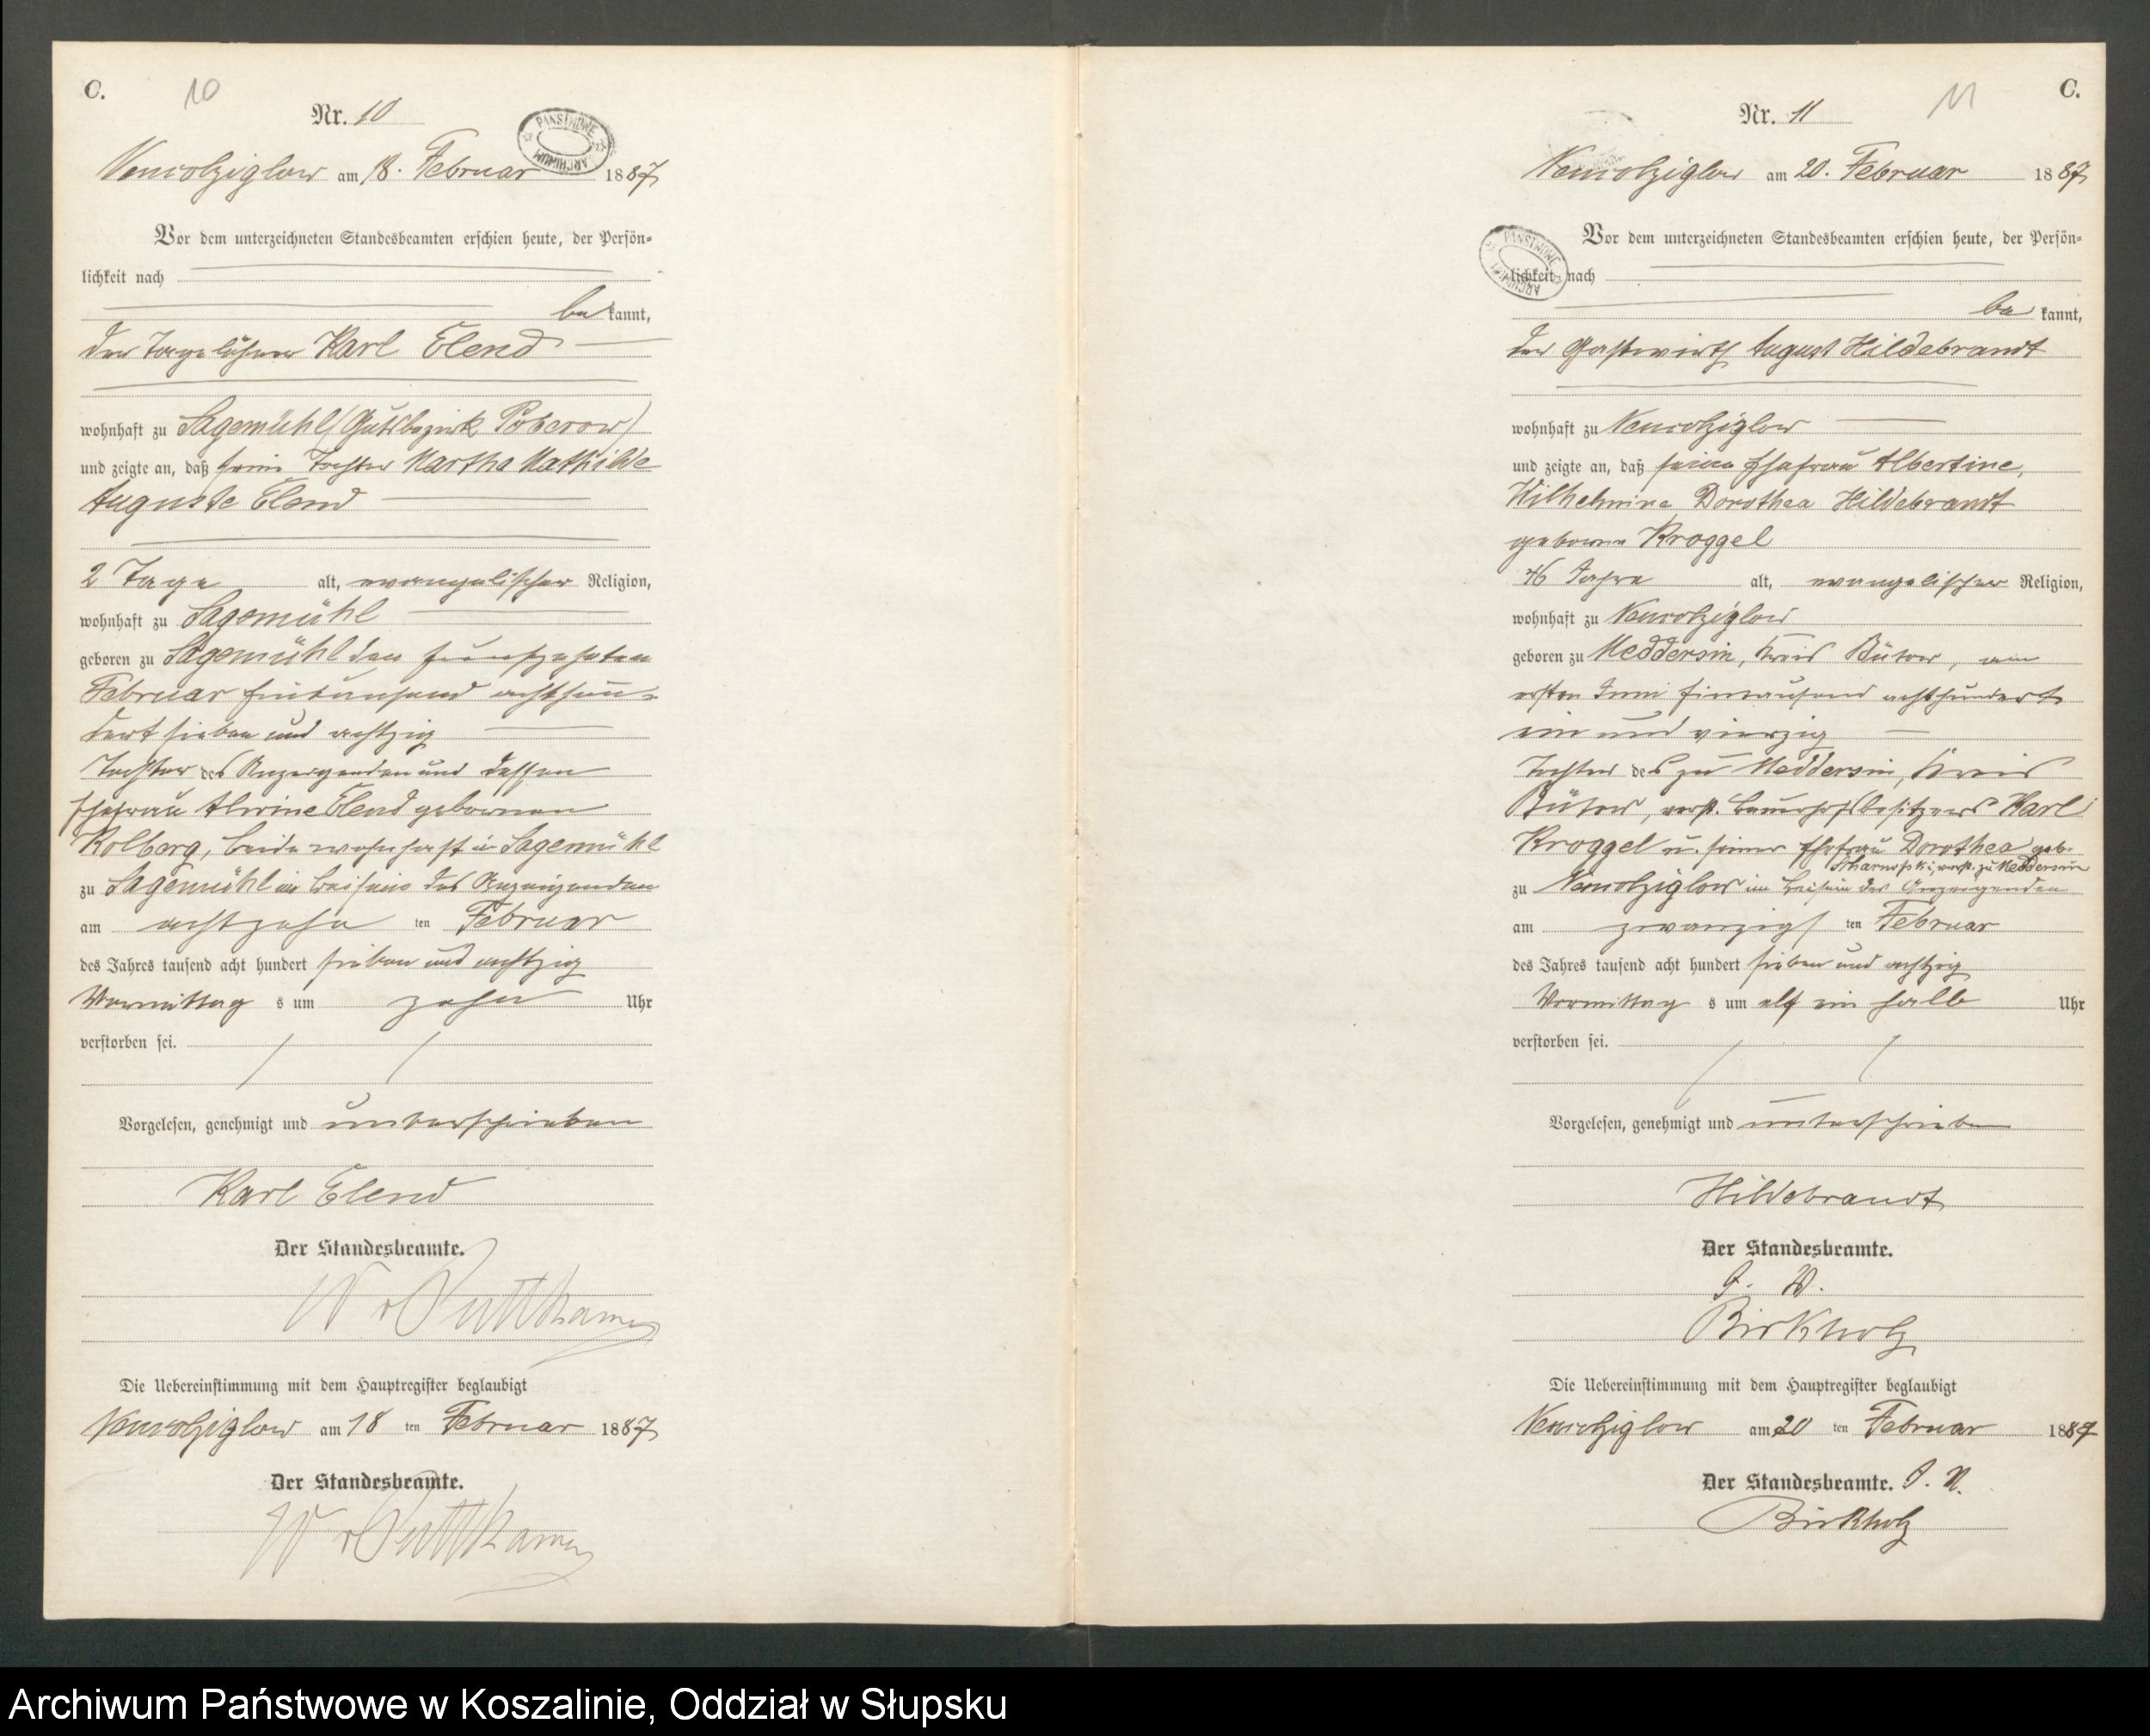 C.
10
Nr. 10
PANSTWOWE ARCHIWUM
Neuwolziglow am 18. Februar 1887
Vor dem unterzeichneten Standesbeamten erschien heute, der Persön-
lichkeit nach
be kannt,
der Tagelöhner Karl Elend
wohnhaft zu Sägemühl (Gutsbezirk Poberow)
und zeigte an, daß seine Tochter Martha Mathilde
Auguste Elend
2 Tage alt, evangelischer Religion,
wohnhaft zu Sägemühl
geboren zu Sägemühl den fünfzehnten
Februar Eintausend achthun-
dert sieben und achtzig
Tochter des Anzeigenden und dessen
Ehefrau Alwine Elend gebornen
Kolberg, beide wohnhaft in Sägemühl
zu Sägemühl im Beisein des Anzeigenden
am achtzehn ten Februar
des Jahres tausend acht hundert sieben und achtzig
Vormittag s um zehn Uhr
verstorben sei.
Vorgelesen, genehmigt und unterschrieben
Karl Elend
Der Standesbeamte.
W v Puttkamer
Die Uebereinstimmung mit dem Hauptregister beglaubigt
Neuwolziglow am 18 ten Februar 1887
Der Standesbeamte.
W v Puttkamer
C.
11
Nr. 11
Neuwolziglow am 20. Februar 1887
PANSTWOWE ARCHIWUM
Vor dem unterzeichneten Standesbeamten erschien heute, der Persön-
lichkeit nach
be kannt,
der Gastwirth August Hildebrandt
wohnhaft zu Neuwolziglow
und zeigte an, daß seine Ehefrau Albertine,
Wilhelmine Dorothea Hildebrandt
geborne Kroggel
46 Jahre alt, evangelischer Religion,
wohnhaft zu Neuwolziglow
geboren zu Meddersin, Kreis Bütow, am
ersten Juni Eintausend achthundert
ein und vierzig
Tochter des zu Meddersin, Kreis
Bütow, verst. Bauerhofsbesitzers Karl
Kroggel u. seiner Ehefrau Dorothea geb.
verst. zu Meddersin
zu Neuwolziglow im Beisein des Anzeigenden
am zwanzigs ten Februar
des Jahres tausend acht hundert sieben und achtzig
Vormittag s um elf ein halb Uhr
verstorben sei.
Vorgelesen, genehmigt und unterschrieben
Hildebrandt
Der Standesbeamte.
J. V.
Birkholz
Die Uebereinstimmung mit dem Hauptregister beglaubigt
Neuwolziglow am 20 ten Februar 1887
Der Standesbeamte. J. V.
Birkholz
Archiwum Państwowe w Koszalinie, Oddział w Słupsku